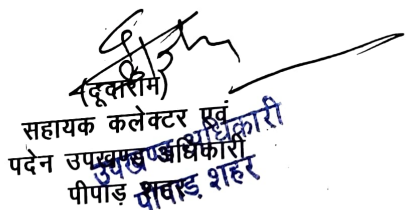 (दूकाराम)
सहायक कलेक्टर एवं
पदेन उपखण्ड अधिकारी
पीपाड़ शहर
उपखण्ड अधिकारी
पीपाड़ शहर